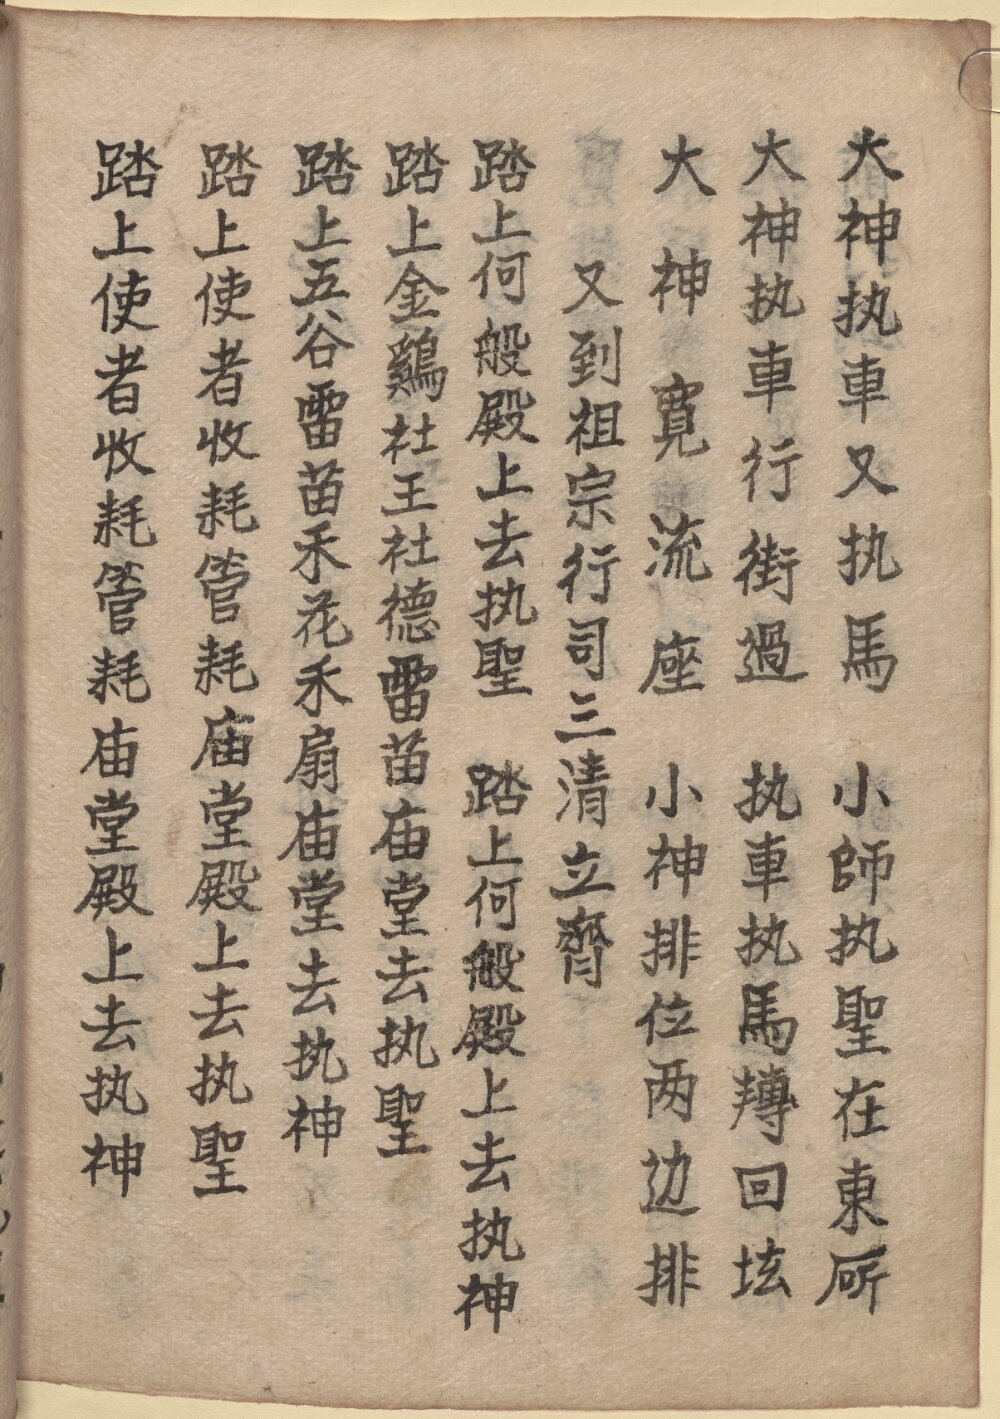 大神执車又执馬　小師执聖在東𠩄
大神执車行街過　执車执馬轉回坛
大神寛流座　小神排位两边排
又到祖宗行司三清立齊
踏上何般殿上去执聖　踏上何般殿上去执神
踏上金鷄社王社德雷苗庙堂去执聖
踏上五谷雷苗禾花禾扇庙堂去执神
踏上使者收耗管耗庙堂殿上去执聖
踏上使者收耗管耗庙堂殿上去执神